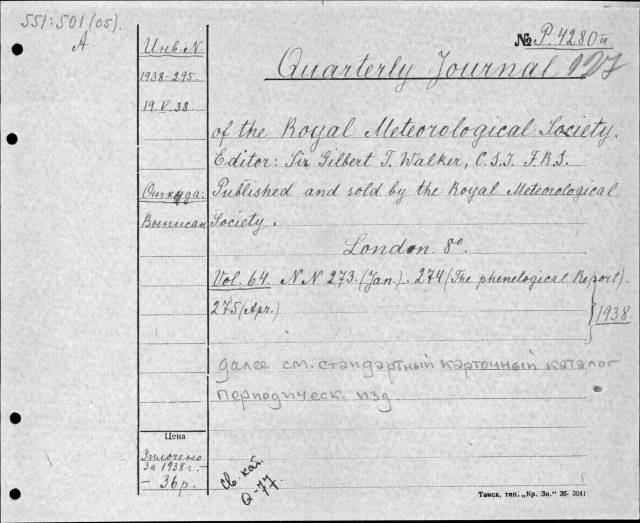 551:501(05).
A
Инв. N
1938-295.
19.V.38.
№ P. 4280 III
127
Quarterly Journal
of the Royal Meteorological Society.
Editor: Sir Gilbert T. Walker, C.S.I. F.R.S.
Откуда:
Выписан
Published and sold by the Royal Meteorological
Society.
London. 8º.
Vol. 64. NN 273. (Jan.). 274 (The phenelogical Report).
275 (Apr.)
1938.
далее см. стандартный карточный каталог
периодическ. изд
Цена
Уплочено
за 1938 г.
- 36 р.
Св. кат.
Q-77.
Томск, тип. „Кр. Зн." 36- 3041